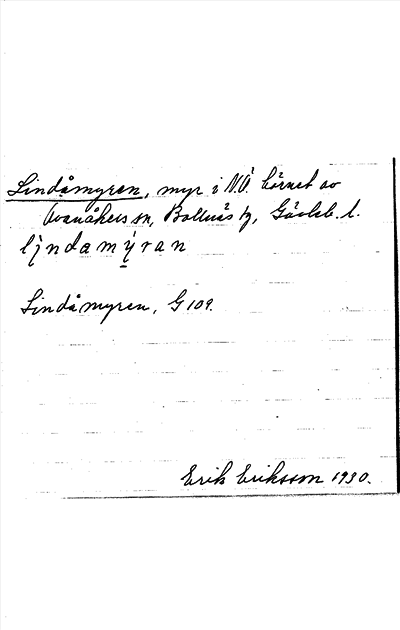 Lindåmyren, myr i N.Ö. hörnet av
Ovanåkers sn, Bollnäs tg, Gävleb. l.
lìndamýran
Lindåmyren, G 109.
Erik Eriksson 1930.